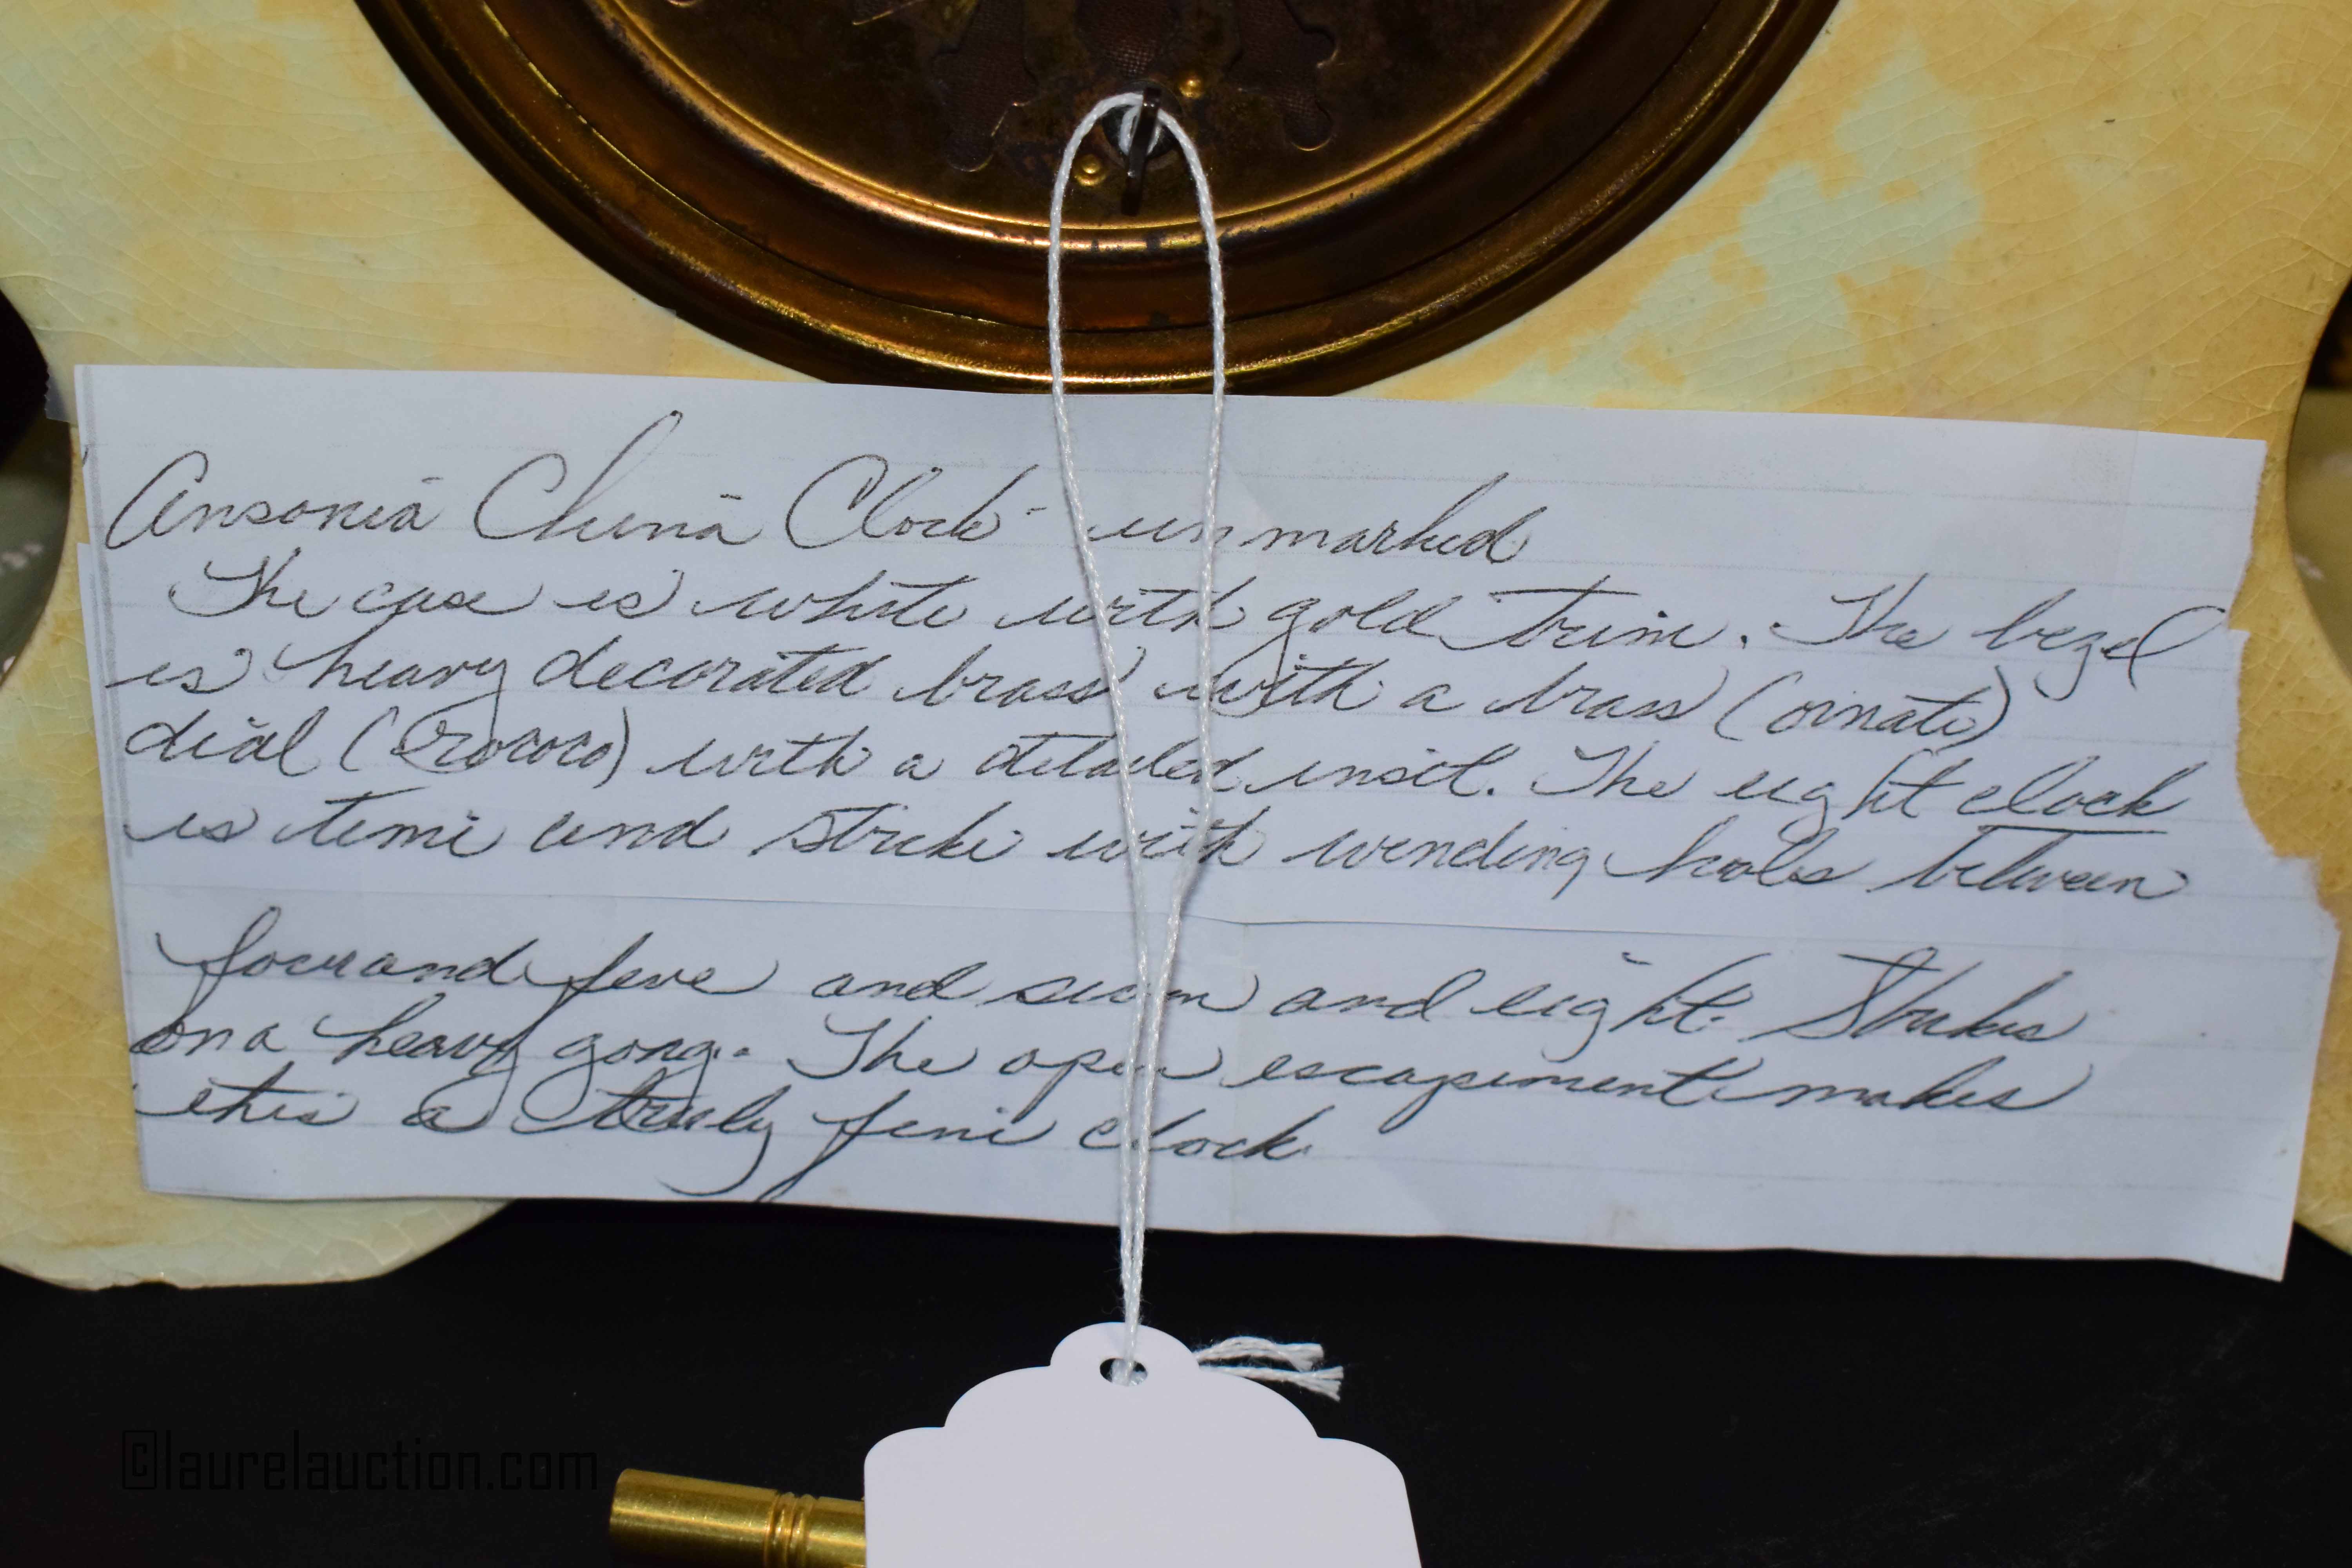 Ansonia China Clock - unmarked
The case is white with gold trim. The bezel
is heavy decorated brass with a brass (ornate)
dial (rococo) with a detailed inset. The eight clock
is time and strike with winding holes between
four and five and seven and eight. Strikes
on a heavy gong. The open escapement makes
this a truly fine clock.
©laurelauction.com